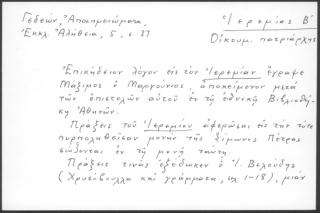 Γεδεών, Ἀποσημειώματα,
Ἐκκλ. Ἀλήθεια, 5, σ. 37
Ἱερεμίας Β´
Οἰκουμ. πατριάρχης
Ἐπικήδειον λόγον εἰς τὸν Ἱερεμίαν ἔγραψε
Μάξιμος ὁ Μαργούνιος, ἀποκείμενον μετὰ
τῶν ἐπιστολῶν αὐτοῦ ἐν τῇ ἐθνικῇ Βιβλιοθή-
κῃ Ἀθηνῶν.
Πράξεις τοῦ Ἱερεμίου ἀφορῶσαι εἰς τὴν τότε
πυρποληθεῖσαν μονὴν τῆς Σίμωνος Πέτρας
σώζονται ἐν τῇ μονῇ ταύτῃ.
Πράξεις τινὰς ἐξέδωκεν ὁ Ἰ. Βελούδης
(Χρυσόβουλλα καὶ γράμματα, 1-18), μίαν